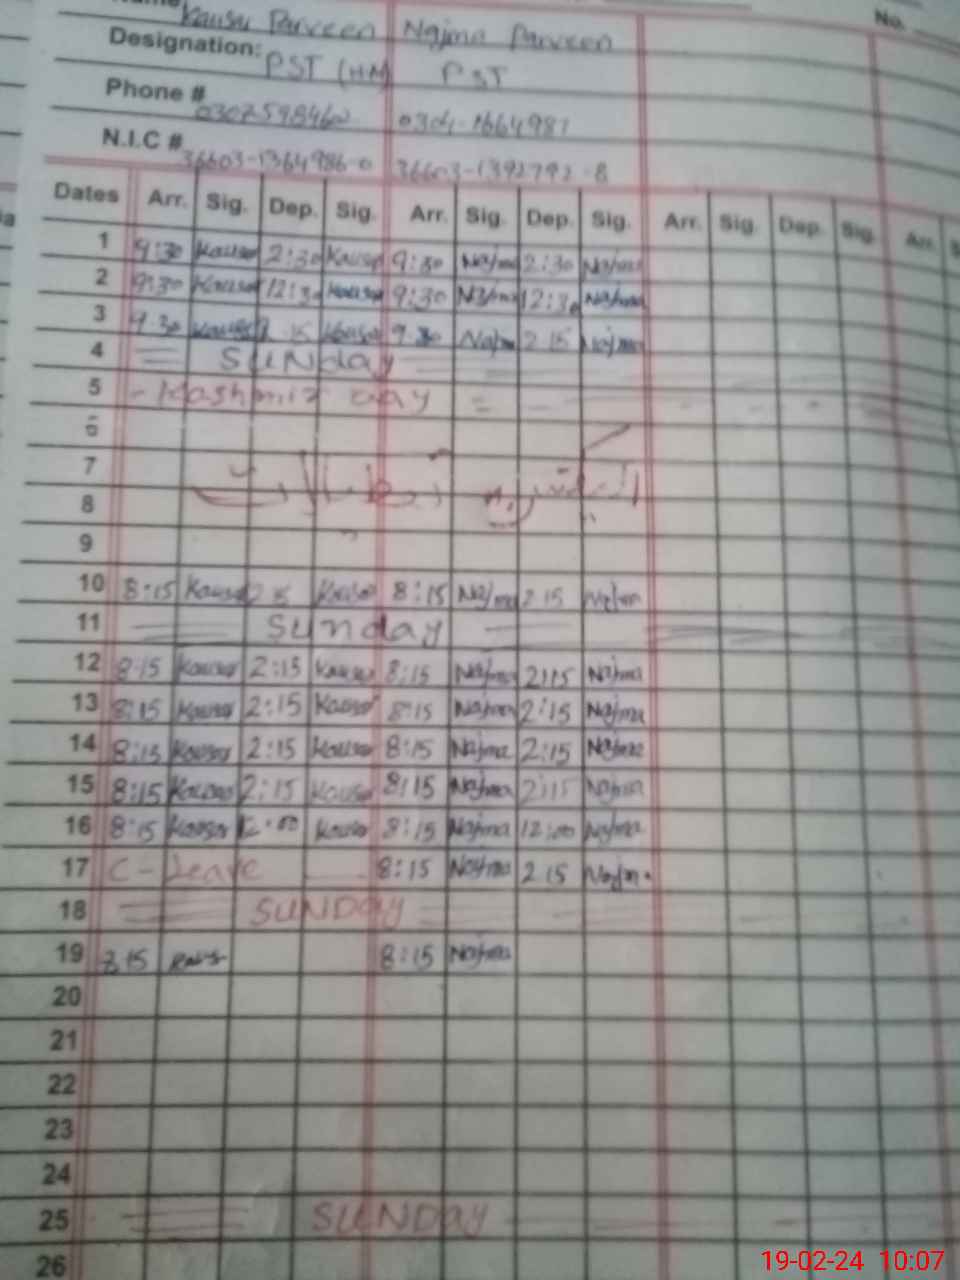 No.
Kausar Parveen Najma Parveen
Designation: PST (HM) PST
Phone #
N.I.C # 36603-1364986-0 36603-1392792-8
Dates Arr. Sig. Dep. Sig. Arr. Sig. Dep. Sig. Arr. Sig. Dep. Sig. Arr.
1 9:30 Kausar 2:30 Kausar 9:30 Najma 2:30 Najma
2 9:30 Kausar 12:30 Kausar 9:30 Najma 12:30 Najma
3 9 30 Kausar 15 Kausar 9 30 Najma 2 15 Najma
4 SUNday
5 Kashmir day
6
7
8
9
10 8:15 Kausar 2 15 Kausar 8:15 Najma 2 15 Najma
11 Sunday
12 8:15 Kausar 2:15 Kausar 8:15 Najma 2:15 Najma
13 8:15 Kausar 2:15 Kausar 8:15 Najma 2:15 Najma
14 8:15 Kausar 2:15 Kausar 8:15 Najma 2:15 Najma
15 8:15 Kausar 2:15 Kausar 8:15 Najma 2:15 Najma
16 8:15 Kausar 12:00 Kausar 8:15 Najma 12:00 Najma
17 C-Leave 8:15 Najma 2 15 Najma
18 SUNDay
19 8:15 8:15 Najma
20
21
22
23
24
25 SUNDay
26
19-02-24 10:07